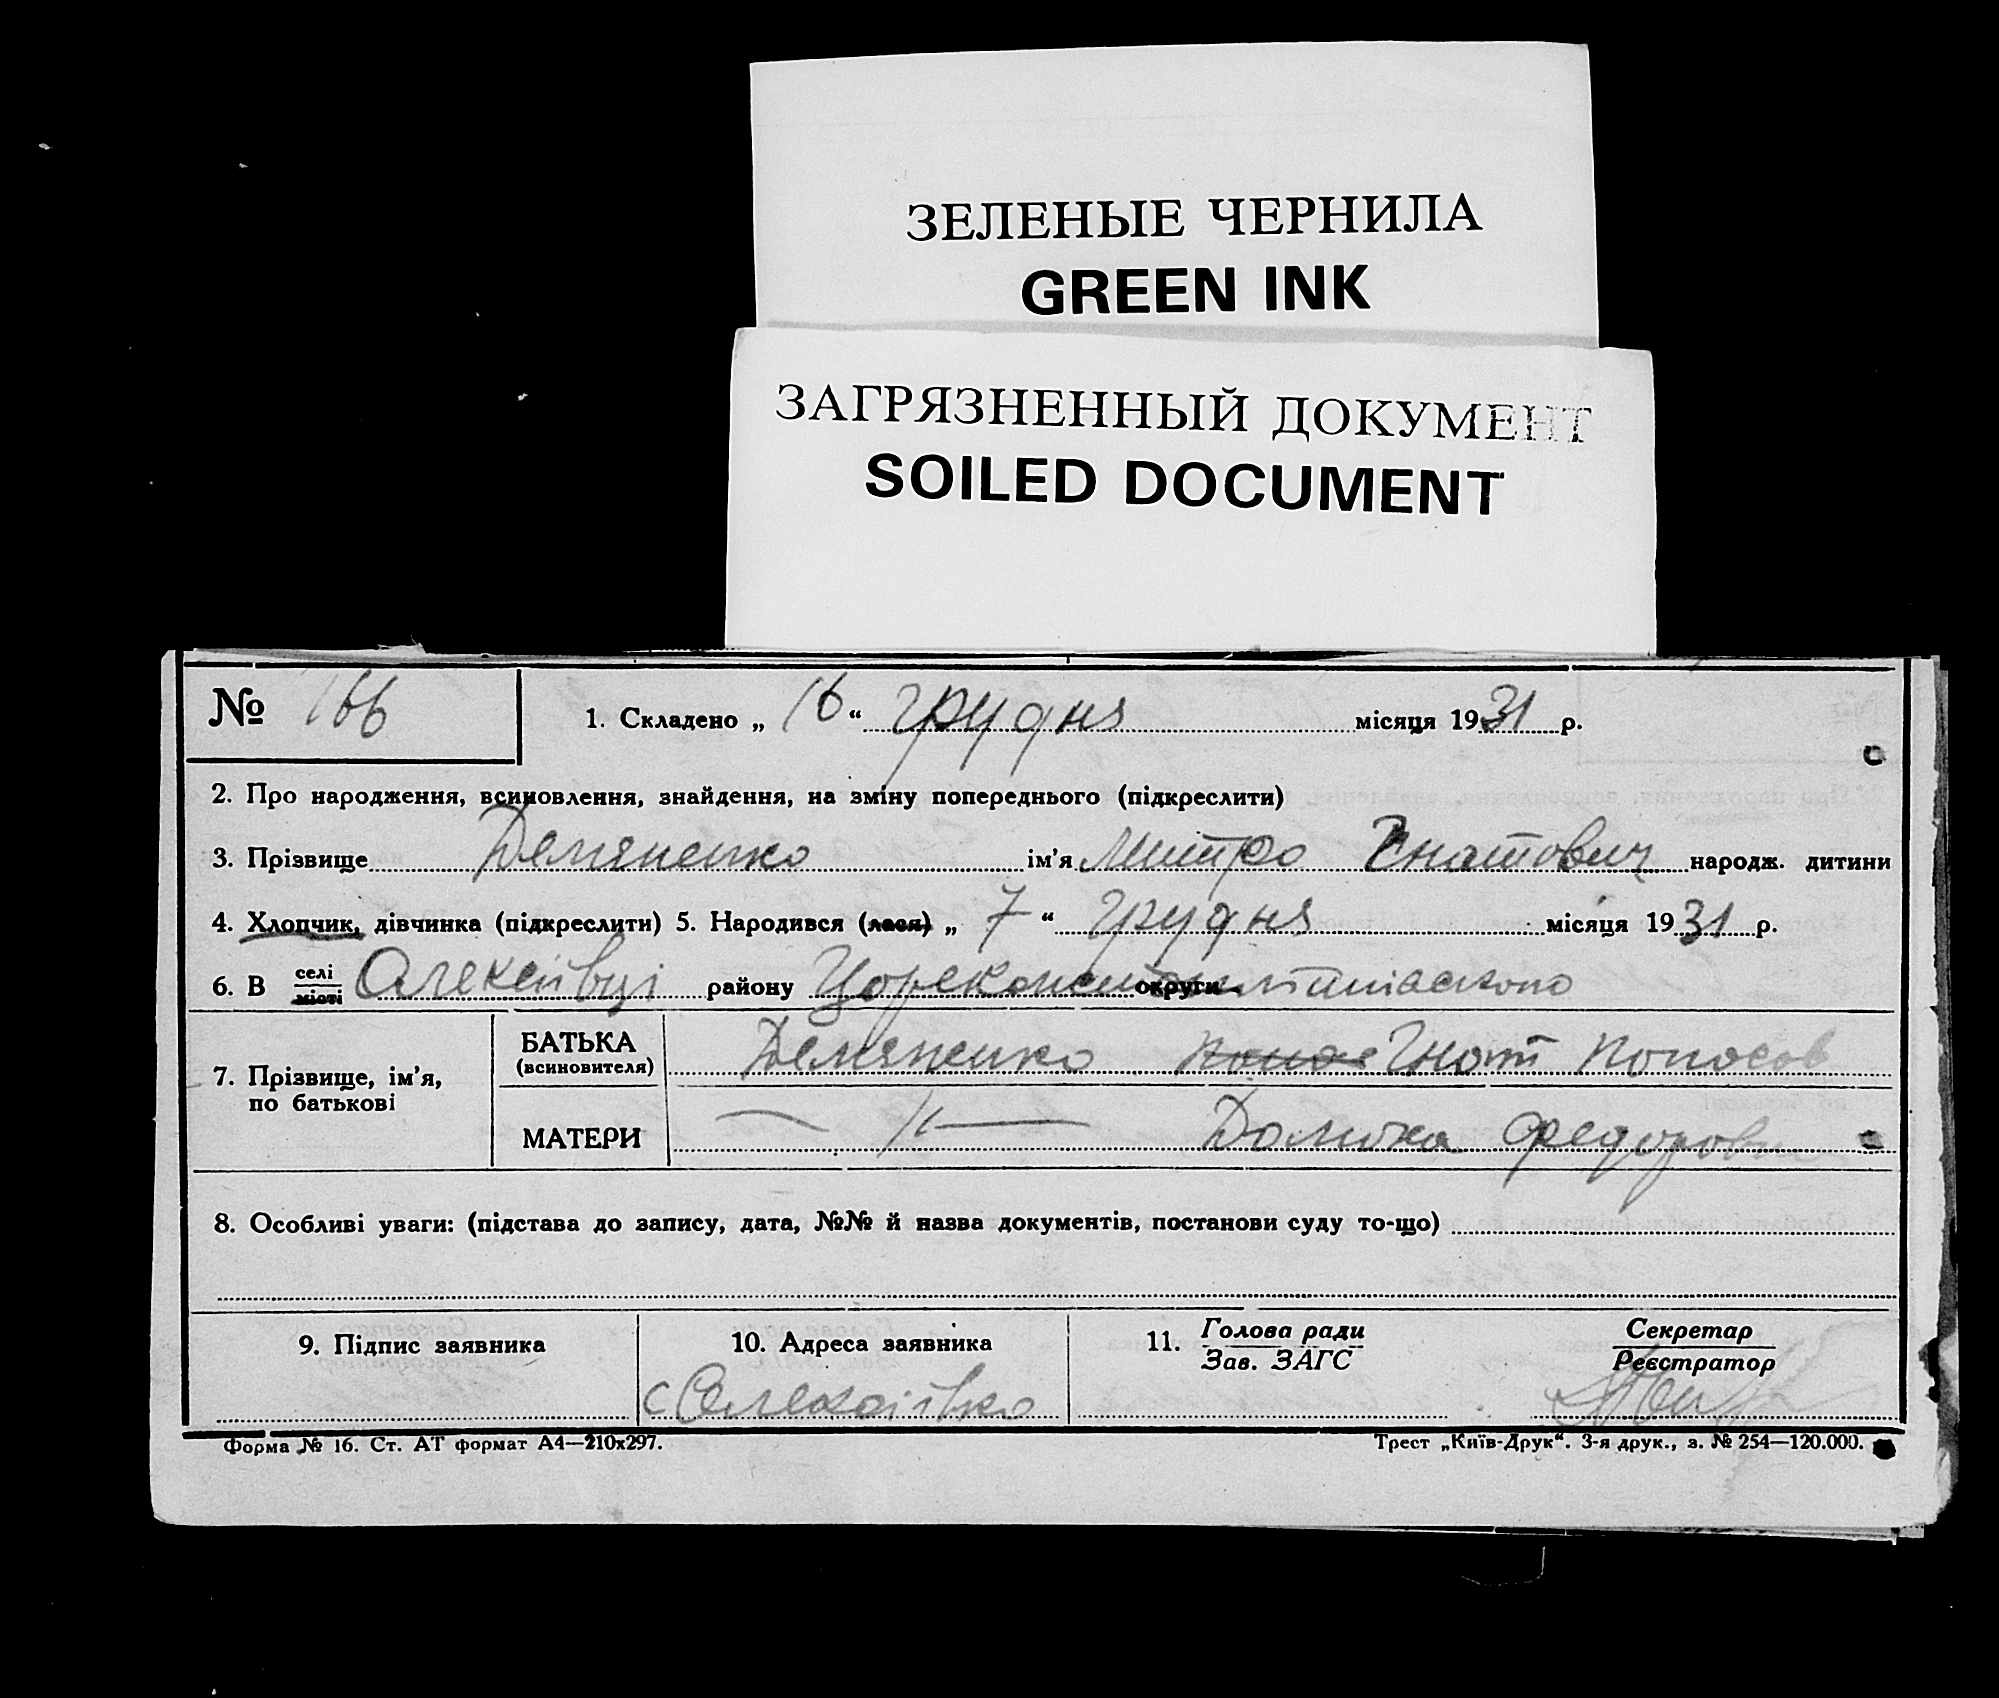 ЗЕЛЕНЫЕ ЧЕРНИЛА
GREEN INK
ЗАГРЯЗНЕННЫЙ ДОКУМЕНТ
SOILED DOCUMENT
№ 166
1. Складено „ 16 “ грудня місяця 1931 р.
2. Про народження, всиновлення, знайдення, на зміну попереднього (підкреслити)
3. Прізвище Демяненко ім’я Митро Гнатович народж. дитини
4. Хлопчик, дівчинка (підкреслити) 5. Народився (лася) „ 7 “ грудня місяця 1931 р.
6. В селі місті Олексіївці району округи
7. Прізвище, ім’я, по батькові
БАТЬКА (всиновителя) Демяненко Гнат
МАТЕРИ — „ —
8. Особливі уваги: (підстава до запису, дата, №№ й назва документів, постанови суду то-що)
9. Підпис заявника
10. Адреса заявника
с Олексіївка
11. Голова ради
Зав. ЗАГС
Секретар
Реєстратор
Форма № 16. Ст. АТ формат А4—210х297.
Трест „Київ-Друк“. 3-я друк., з. № 254—120.000.